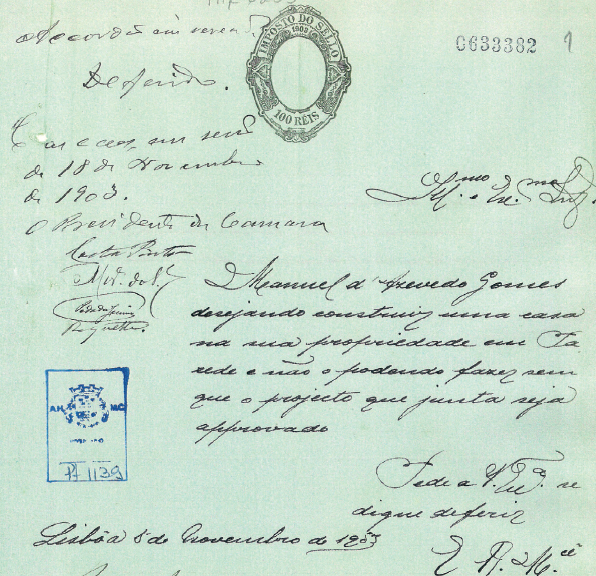 Accordão em verea
Deferido.
de 18 de Novembro
de 1903.
O Presidente da Camara
Costa Pinto
IMPOSTO DO SELLO
1903
100 RÉIS
0633382
1
Illmo e Exmo Snr.
D. Manuel d'Azevedo Gomes
desejando construir uma casa
na sua propriedade em Pa
rede e não o podendo fazer sem
que o projecto que junta seja
approvado
Pede a V. Exª. se
digne deferir
E. R. Mcê
A.H. M.C.
1139
Lisbôa 5 de Novembro de 1903